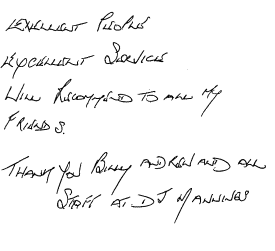 Excellent People
Excellent Service
Will Recommend to all my
Friends.
Thank You Billy Andrew and all
Staff at DJ Mannings